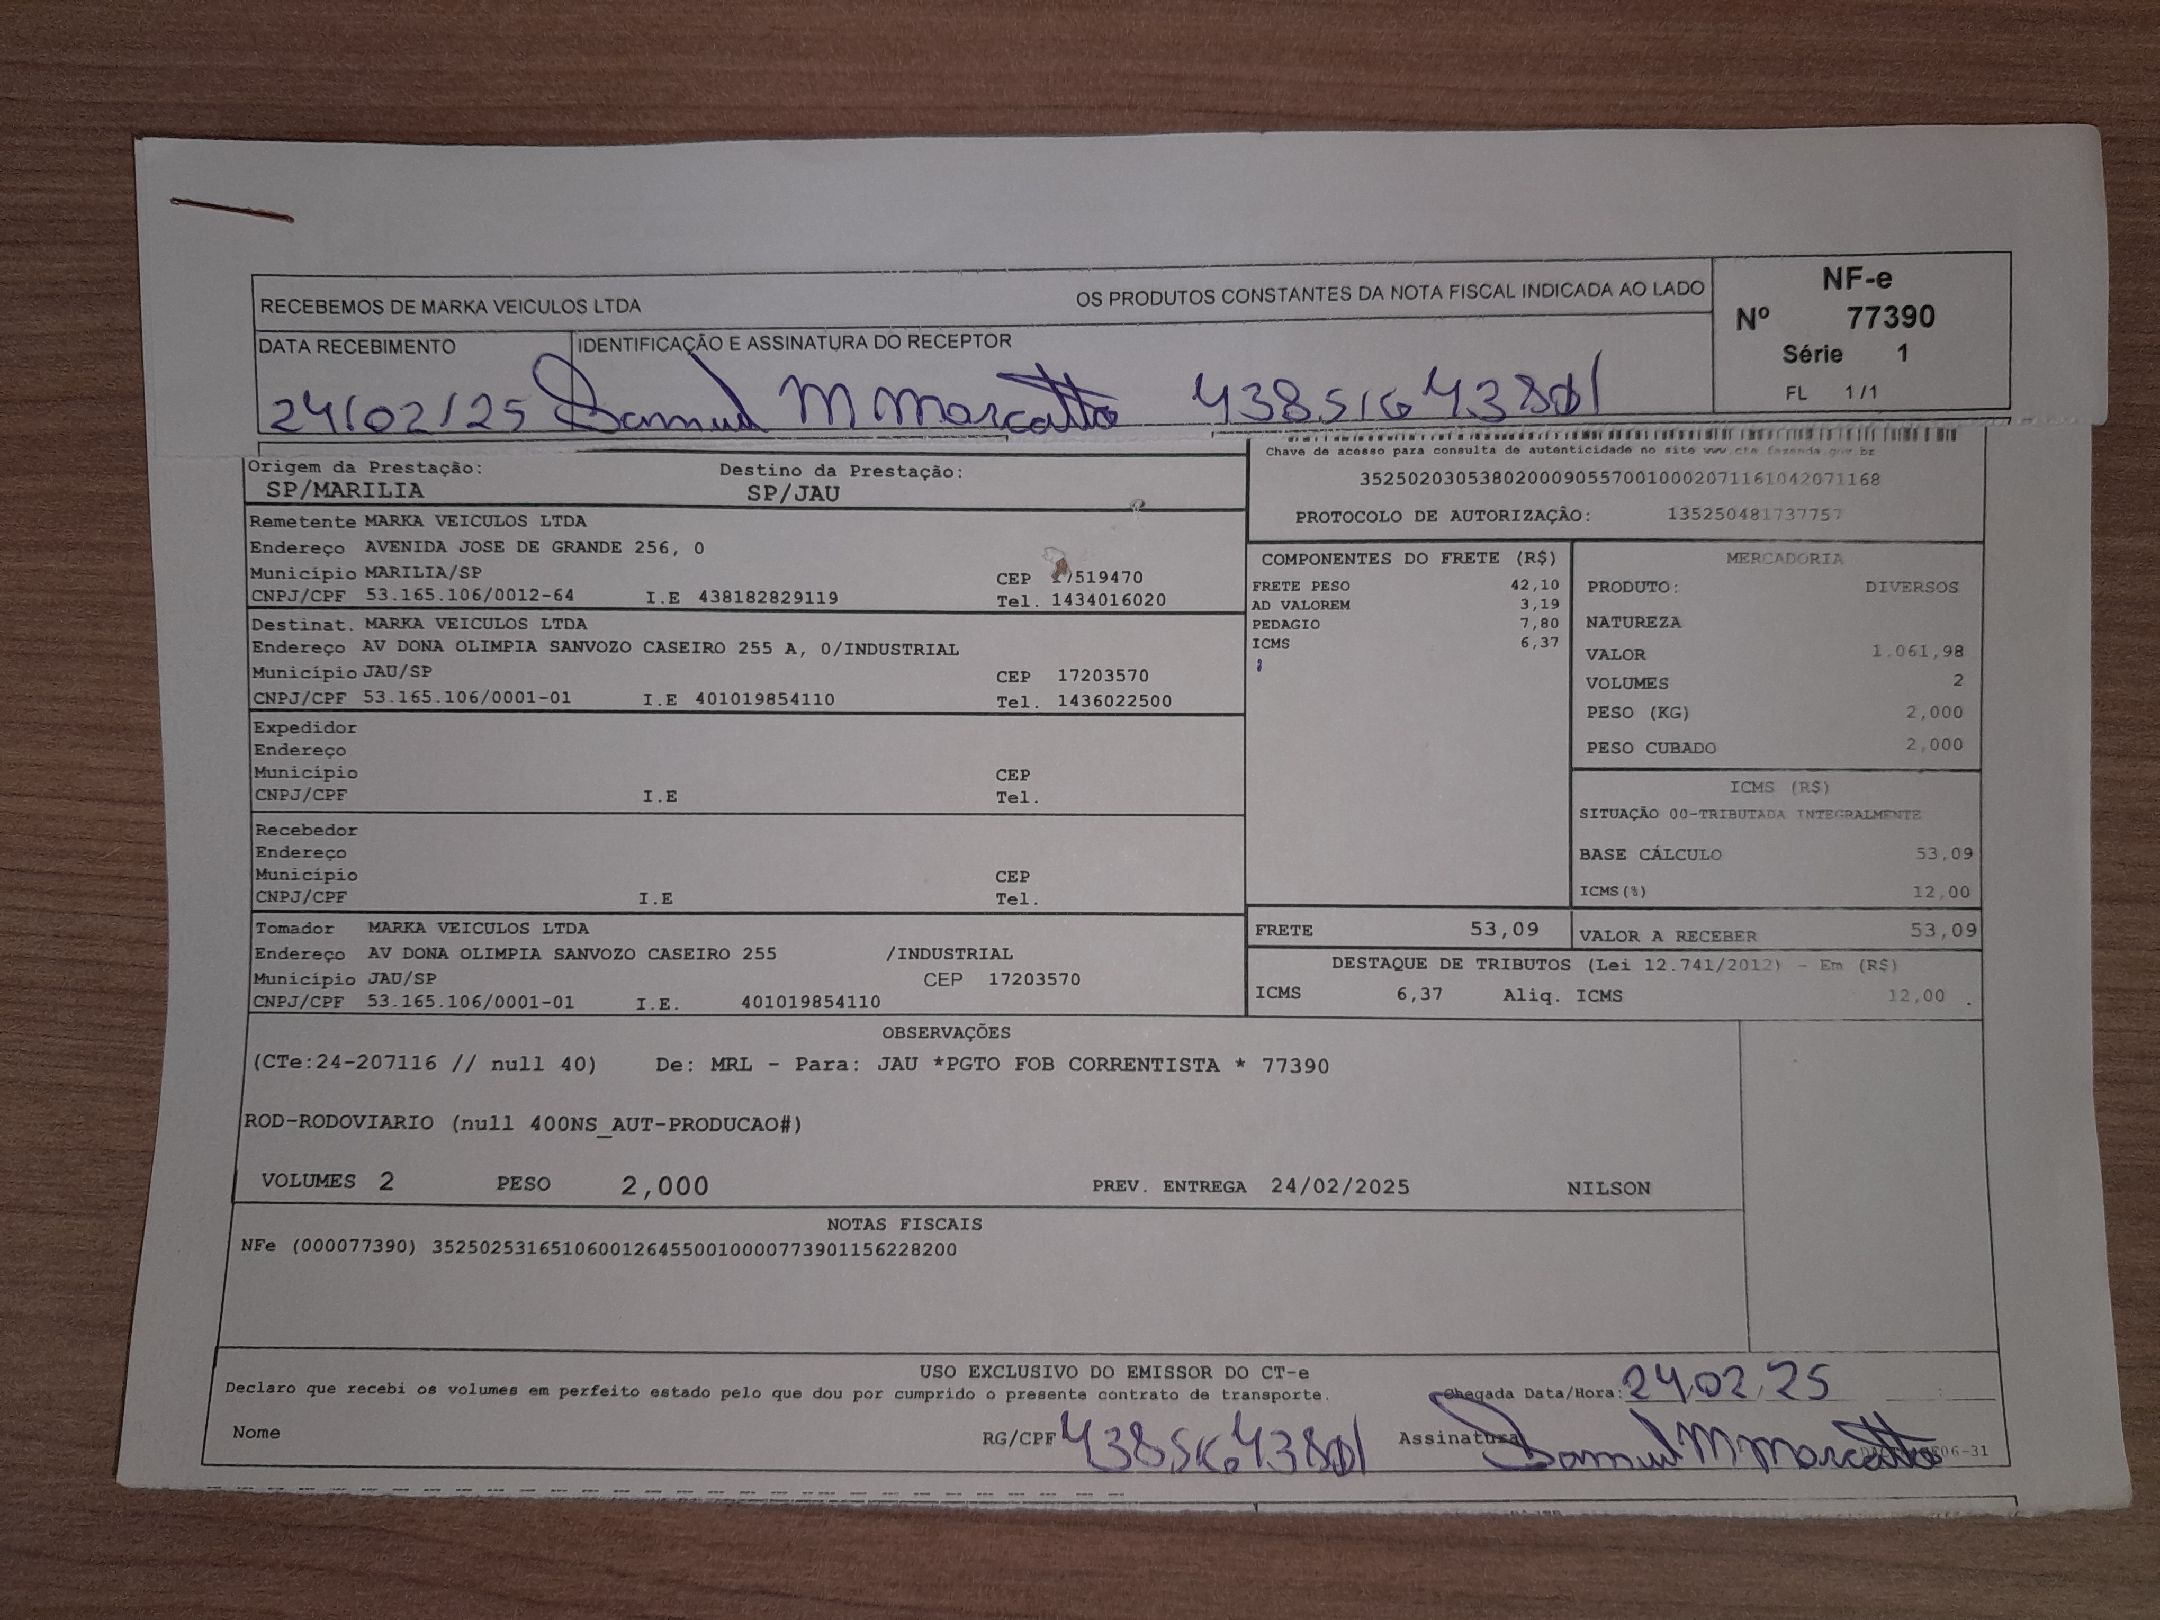 RECEBEMOS DE MARKA VEICULOS LTDA OS PRODUTOS CONSTANTES DA NOTA FISCAL INDICADA AO LADO
NF-e
Nº 77390
Série 1
FL 1/1
DATA RECEBIMENTO IDENTIFICAÇÃO E ASSINATURA DO RECEPTOR
24/02/25 Samuel M Marcatto
Chave de acesso para consulta de autenticidade no site www.cte.fazenda.gov.br
35250203053802000905570010002071161042071168
PROTOCOLO DE AUTORIZAÇÃO: 135250481737757
Origem da Prestação: Destino da Prestação:
SP/MARILIA SP/JAU
Remetente MARKA VEICULOS LTDA
Endereço AVENIDA JOSE DE GRANDE 256, 0
Município MARILIA/SP CEP 17519470
CNPJ/CPF 53.165.106/0012-64 I.E 438182829119 Tel. 1434016020
Destinat. MARKA VEICULOS LTDA
Endereço AV DONA OLIMPIA SANVOZO CASEIRO 255 A, 0/INDUSTRIAL
Município JAU/SP CEP 17203570
CNPJ/CPF 53.165.106/0001-01 I.E 401019854110 Tel. 1436022500
Expedidor
Endereço
Município CEP
CNPJ/CPF I.E Tel.
Recebedor
Endereço
Município CEP
CNPJ/CPF I.E Tel.
Tomador MARKA VEICULOS LTDA
Endereço AV DONA OLIMPIA SANVOZO CASEIRO 255 /INDUSTRIAL
Município JAU/SP CEP 17203570
CNPJ/CPF 53.165.106/0001-01 I.E. 401019854110
COMPONENTES DO FRETE (R$)
FRETE PESO 42,10
AD VALOREM 3,19
PEDAGIO 7,80
ICMS 6,37
MERCADORIA
PRODUTO: DIVERSOS
NATUREZA
VALOR 1.061,98
VOLUMES 2
PESO (KG) 2,000
PESO CUBADO 2,000
ICMS (R$)
SITUAÇÃO 00-TRIBUTADA INTEGRALMENTE
BASE CÁLCULO 53,09
ICMS(%) 12,00
FRETE 53,09 VALOR A RECEBER 53,09
DESTAQUE DE TRIBUTOS (Lei 12.741/2012) - Em (R$)
ICMS 6,37 Aliq. ICMS 12,00
OBSERVAÇÕES
(CTe:24-207116 // null 40) De: MRL - Para: JAU *PGTO FOB CORRENTISTA * 77390
ROD-RODOVIARIO (null 400NS_AUT-PRODUCAO#)
VOLUMES 2 PESO 2,000 PREV. ENTREGA 24/02/2025 NILSON
NOTAS FISCAIS
NFe (000077390) 35250253165106001264550010000773901156228200
USO EXCLUSIVO DO EMISSOR DO CT-e
Declaro que recebi os volumes em perfeito estado pelo que dou por cumprido o presente contrato de transporte. Chegada Data/Hora: 24/02/25
Nome RG/CPF Assinatura Samuel M Marcatto